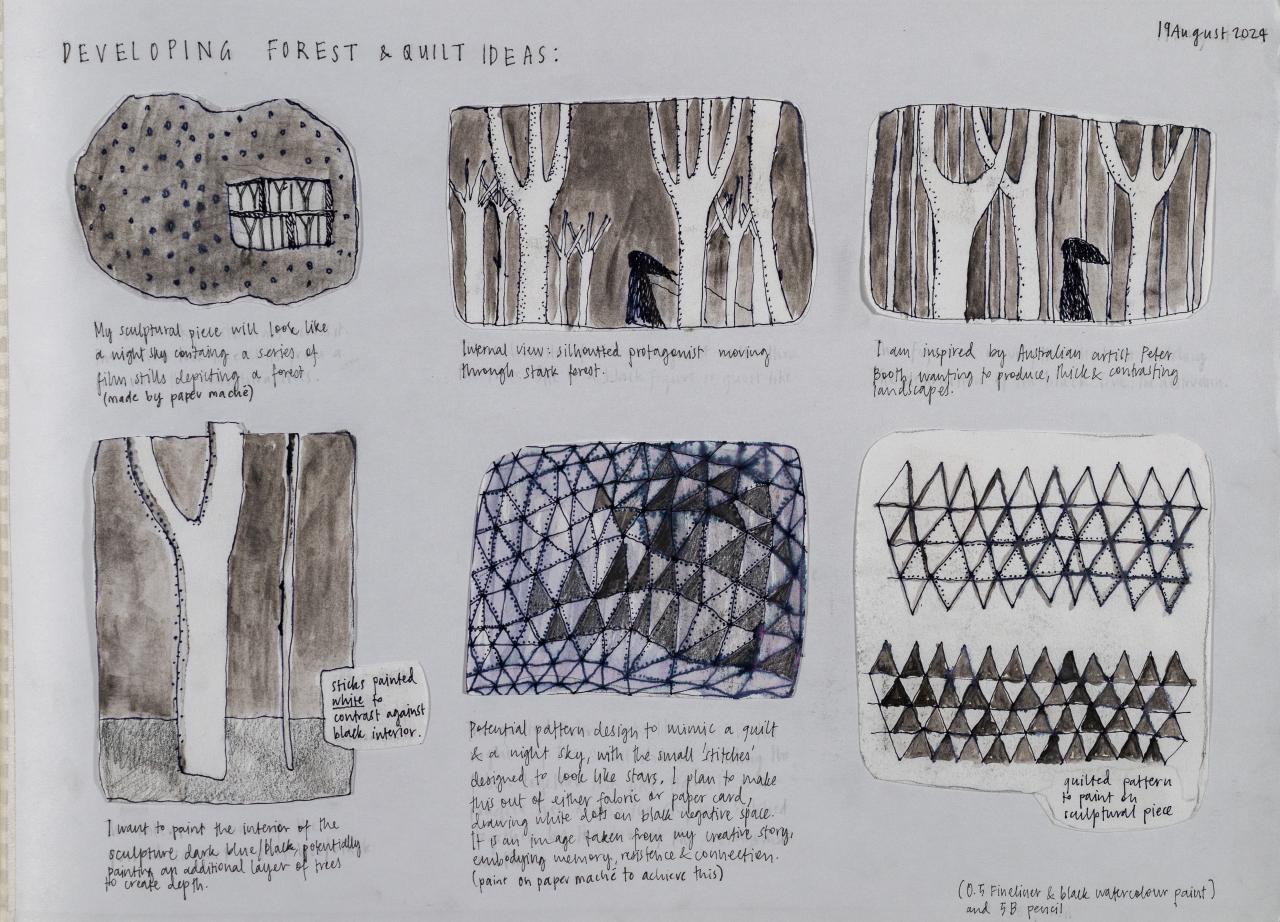 19 August 2024
DEVELOPING FOREST & QUILT IDEAS:
My sculptural piece will look like
a night sky containg a series of
film stills depicting a forest.
(made by paper maché)
Internal view: silhoutted protagonist moving
through stark forest.
I am inspired by Australian artist Peter
Booth, wanting to produce, thick & contrasting
landscapes.
sticks painted
white to
contrast against
black interior.
I want to paint the interior of the
sculpture dark blue/black, potentially
painting an additional layer of trees
to create depth.
Potential pattern design to mimic a quilt
& a night sky, with the small 'stitches'
designed to look like stars. I plan to make
this out of either fabric or paper card,
drawing white dots on black negative space.
It is an image taken from my creative story,
embodying memory, resistence & connection.
(paint on paper maché to achieve this)
quilted pattern
to paint on
sculptural piece
(0.5 Fineliner & black watercolour paint)
and 5B pencil